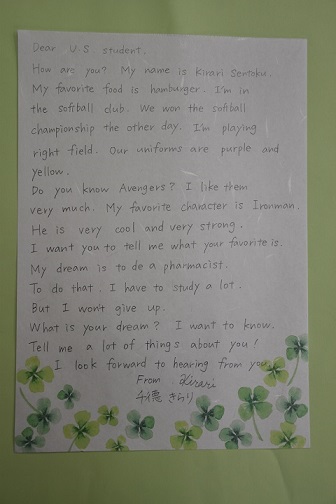 Dear U.S. student.
How are you? My name is Kirari Sentoku.
My favorite food is hamburger. I'm in
the softball club. We won the softball
championship the other day. I'm playing
right field. Our uniforms are purple and
yellow.
Do you know Avengers? I like them
very much. My favorite character is Ironman.
He is very cool and very strong.
I want you to tell me what your favorite is.
My dream is to de a pharmacist.
To do that, I have to study a lot.
But I won't give up.
What is your dream? I want to know.
Tell me a lot of things about you!
I look forward to hearing from you.
From. Kirari
千徳 きらり